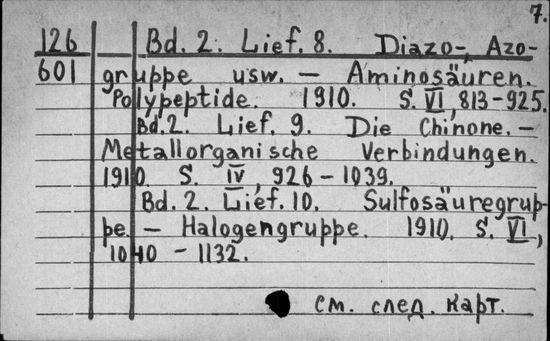 7.
126 Bd. 2. Lief. 8. Diazo-, Azo-
601 gruppe usw. — Aminosäuren.
Polypeptide. 1910. S. VI, 813-925.
Bd. 2. Lief. 9. Die Chinone. —
Metallorganische Verbindungen.
1910. S. IV, 926-1039.
Bd. 2. Lief. 10. Sulfosäuregrup-
pe. — Halogengruppe. 1910. S. VI,
1040 - 1132.
см. след. карт.